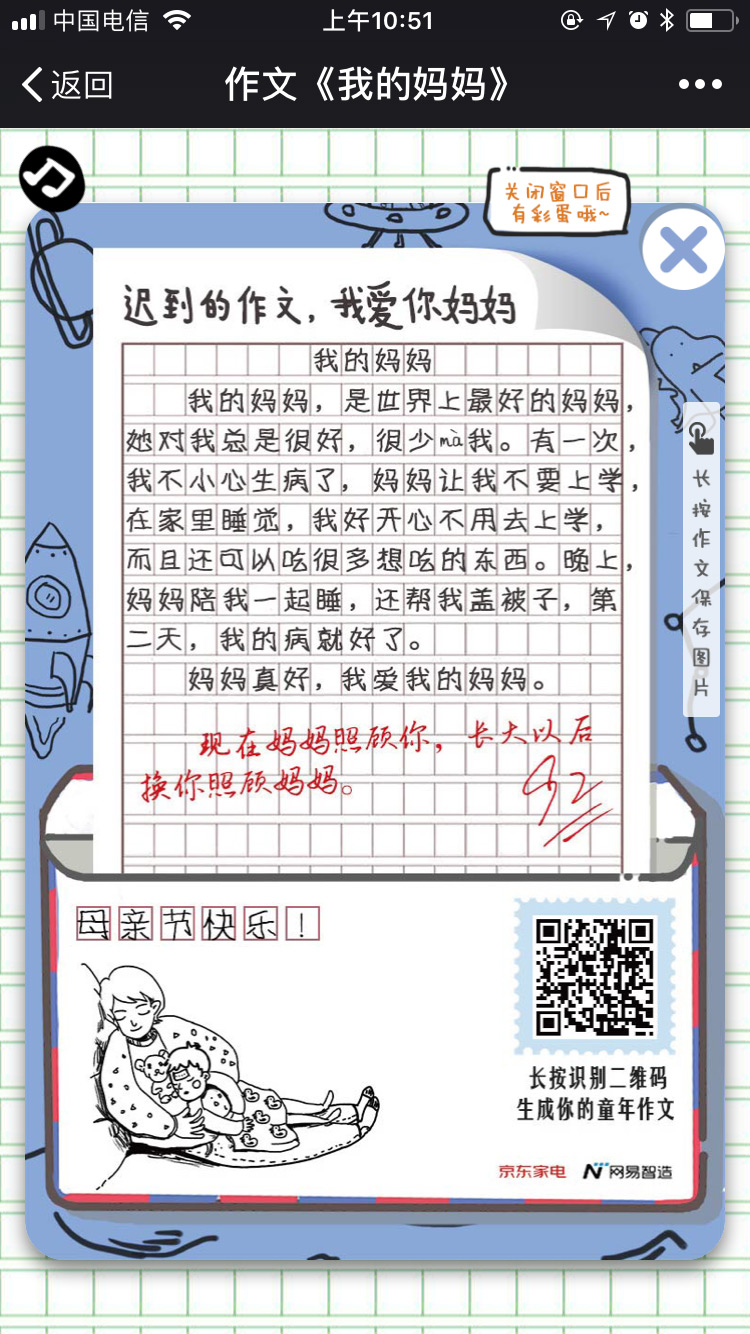 中国电信
上午10:51
返回
作文《我的妈妈》
关闭窗口后
有彩蛋哦~
迟到的作文,我爱你妈妈
我的妈妈
我的妈妈,是世界上最好的妈妈,
她对我总是很好,很少mà我。有一次,
我不小心生病了,妈妈让我不要上学,
在家里睡觉,我好开心不用去上学,
而且还可以吃很多想吃的东西。晚上,
妈妈陪我一起睡,还帮我盖被子,第
二天,我的病就好了。
妈妈真好,我爱我的妈妈。
现在妈妈照顾你,长大以后
换你照顾妈妈。
92
长按作文保存图片
母亲节快乐!
长按识别二维码
生成你的童年作文
京东家电
网易智造